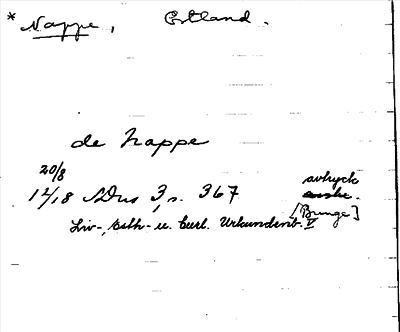 * Nappe, Estland.
de Nappe
20/8
12/18 SDns 3, s. 367 avtryck
[Bunge]
Liv-, Esth- u. Curl. Urkundenb. V